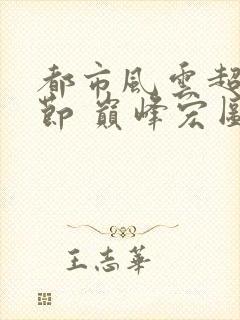 都市風雲超
節 巔峰宏圖
王志華